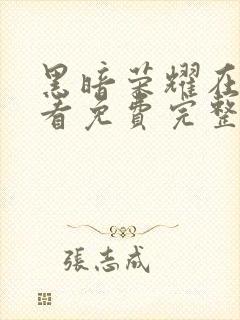 黑暗荣耀在
看免费完整
張志成